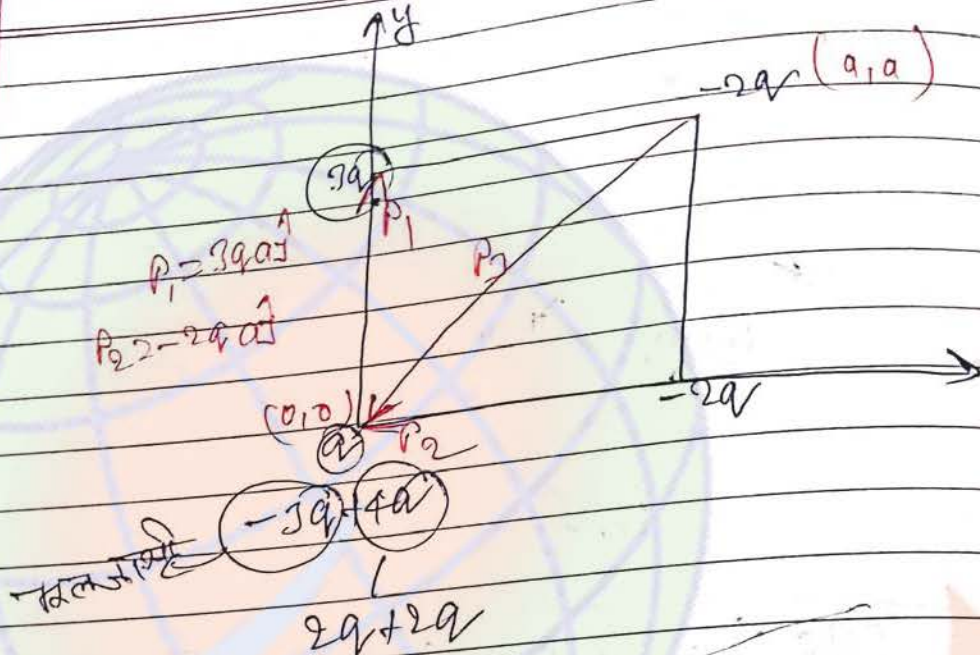 y
-2q (a, a)
3q
P₁
P₁ = 3qaĵ
P₃
P₂ = -2qaĵ
-2q
(0,0)
q
P₂
-3q + 4q
2q + 2q